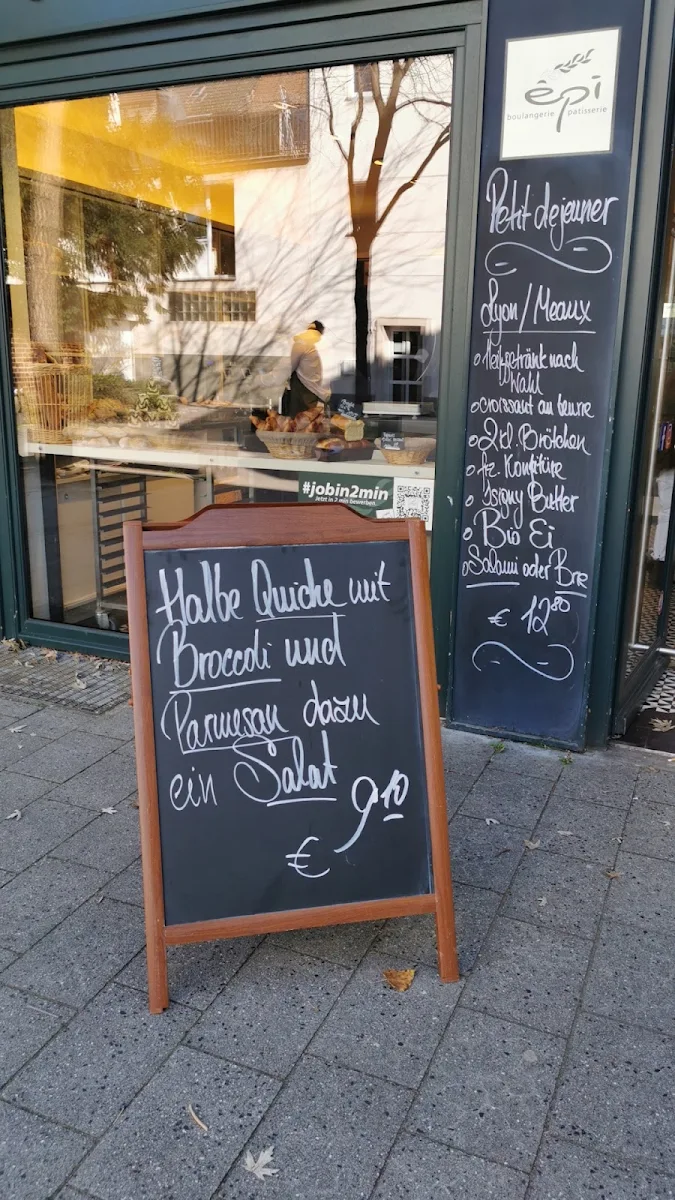 êpi
boulangerie patisserie
Petit dejeuner
Lyon / Meaux
Heißgetränk nach
Wahl
croissant au beurre
2 kl. Brötchen
fr. Konfitüre
Isigny Butter
Bio Ei
Salami oder Brie
€ 12 80
#jobin2min
Jetzt in 2 min bewerben.
Halbe Quiche mit
Broccoli und
Parmesan dazu
ein Salat
€ 9 10